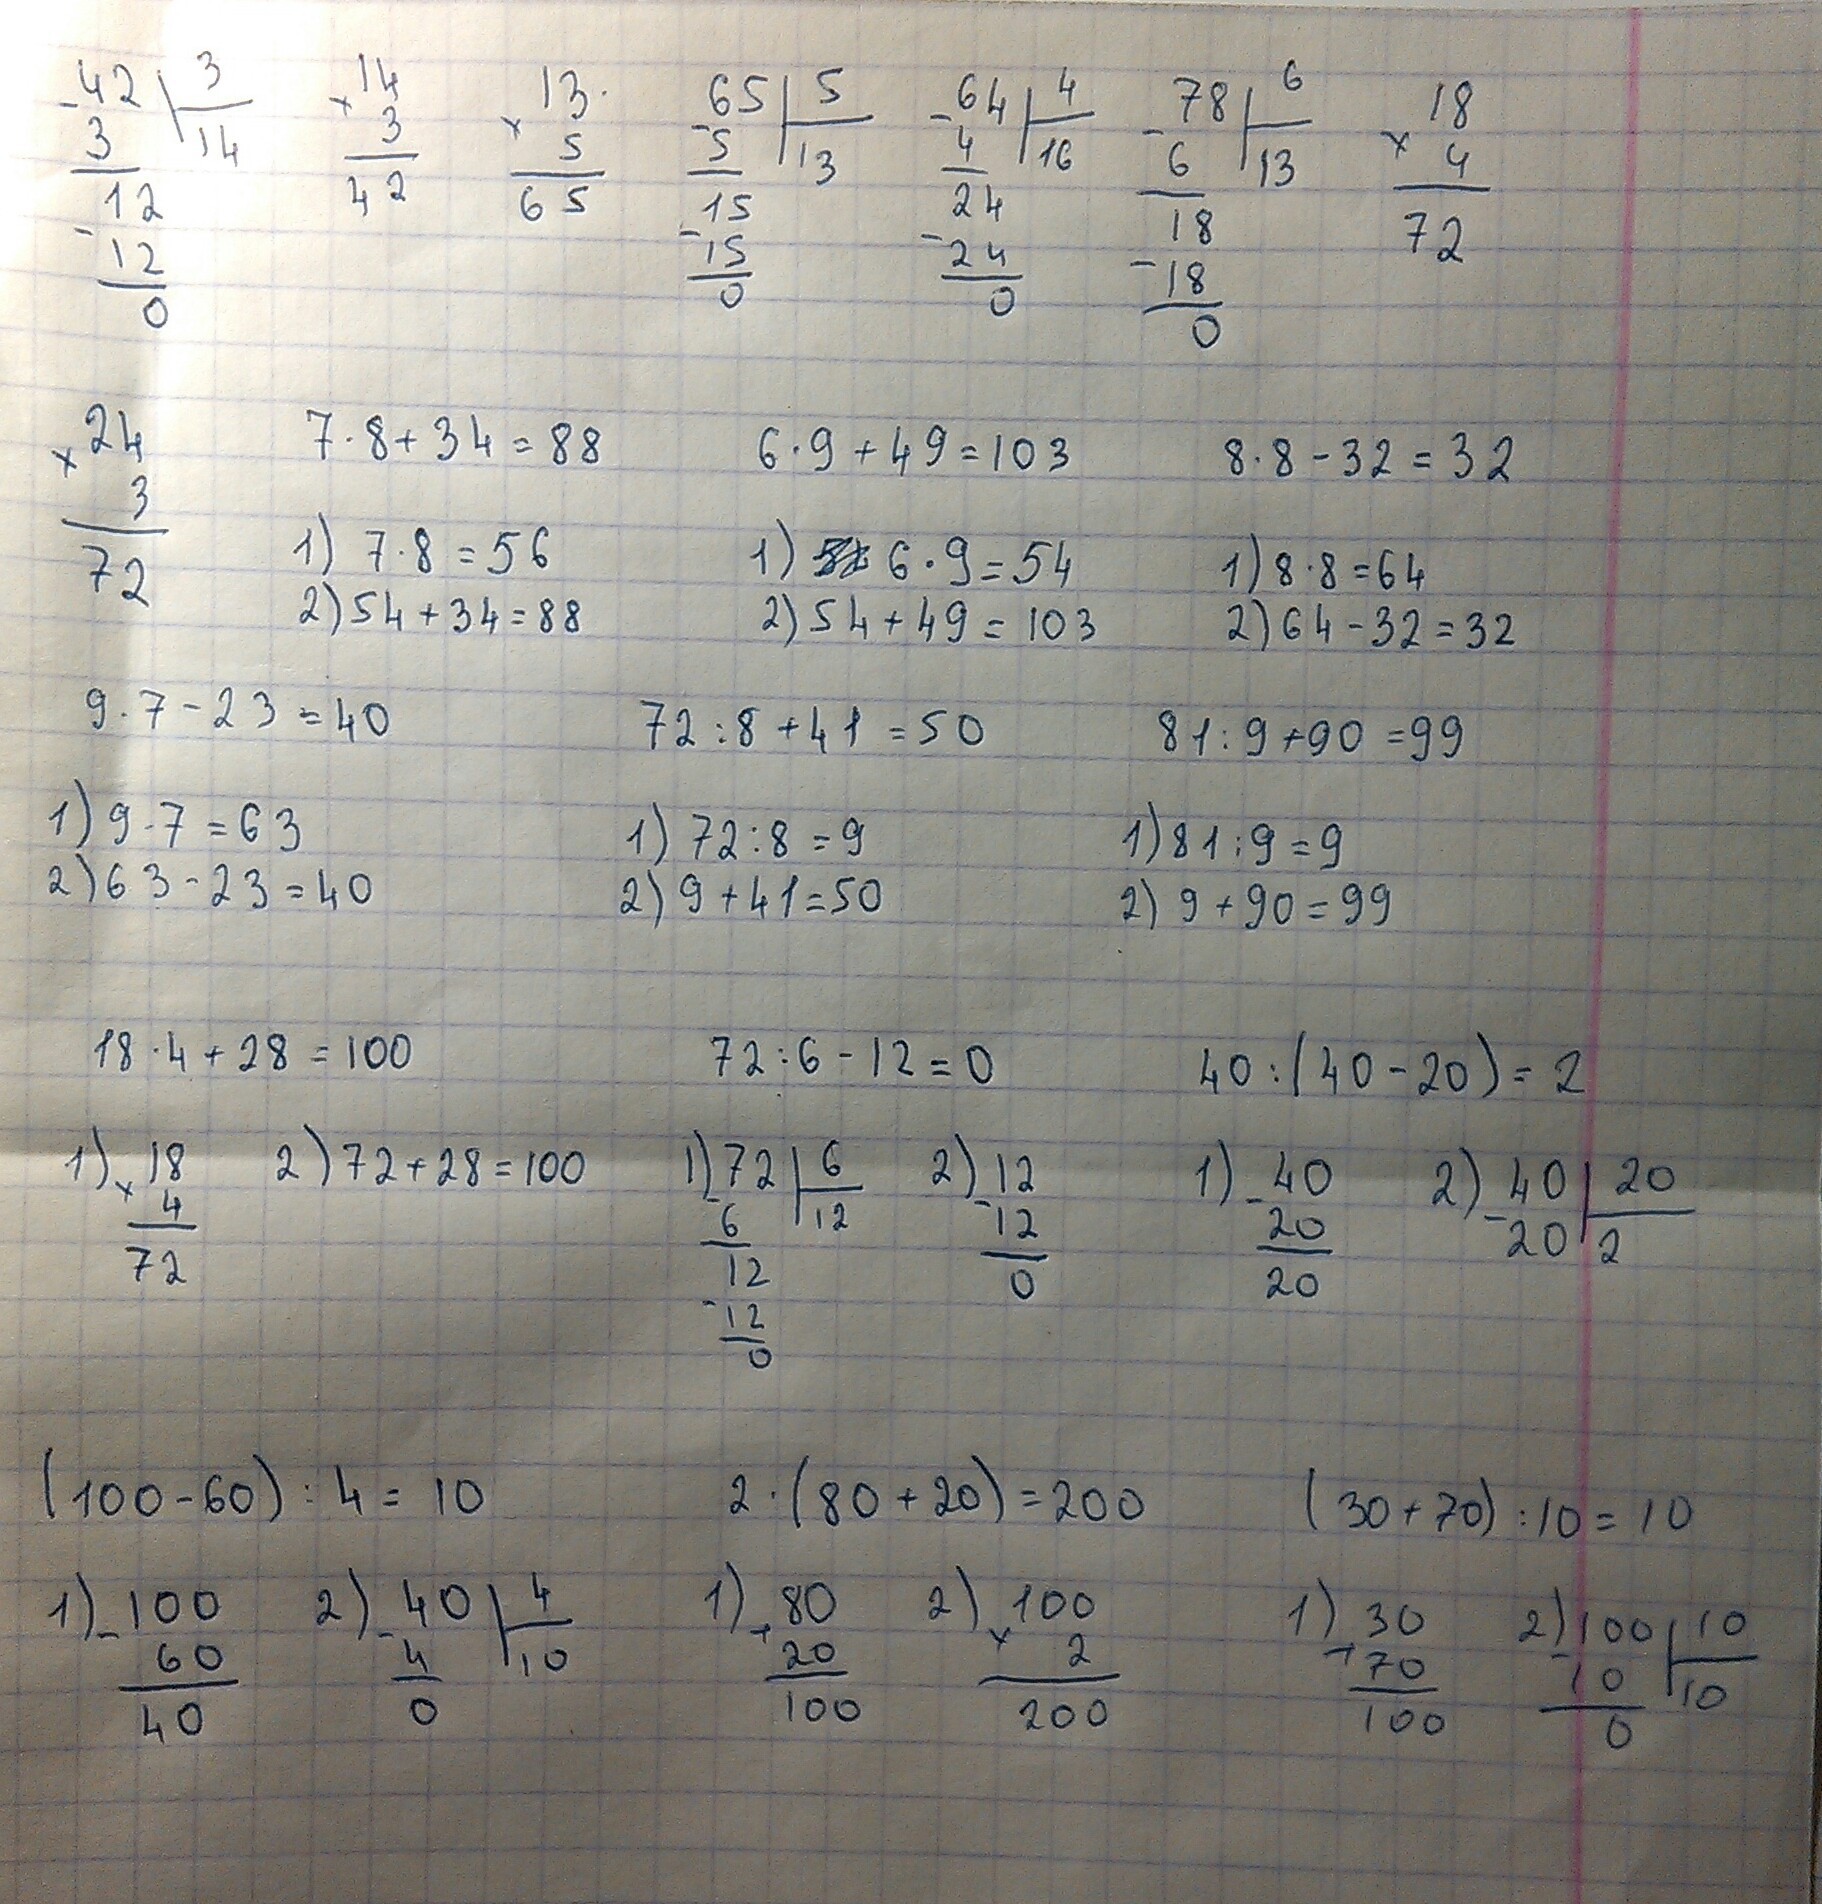 -42 | 3   × 14   × 13   -65 | 5   -64 | 4   -78 | 6   × 18
3 | 14   3   5   5 | 13   4 | 16   6 | 13   4
12   42   65   15   24   18   72
-12   -15   -24   -18
0   0   0   0
× 24   7·8+34=88   6·9+49=103   8·8-32=32
3
72   1) 7·8=56   1) 6·9=54   1) 8·8=64
2) 54+34=88   2) 54+49=103   2) 64-32=32
9·7-23=40   72:8+41=50   81:9+90=99
1) 9·7=63   1) 72:8=9   1) 81:9=9
2) 63-23=40   2) 9+41=50   2) 9+90=99
18·4+28=100   72:6-12=0   40:(40-20)=2
1) × 18   2) 72+28=100   1) -72 | 6   2) -12   1) -40   2) -40 | 20
4   6 | 12   12   20   20 | 2
72   12   0   20
-12
0
(100-60):4=10   2·(80+20)=200   (30+70):10=10
1) -100   2) -40 | 4   1) +80   2) × 100   1) +30   2) -100 | 10
60   4 | 10   20   2   70   10 | 10
40   0   100   200   100   0